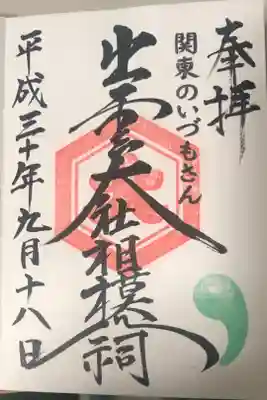 奉拝
関東のいづもさん
出雲大社相模分祠
平成三十年九月十八日